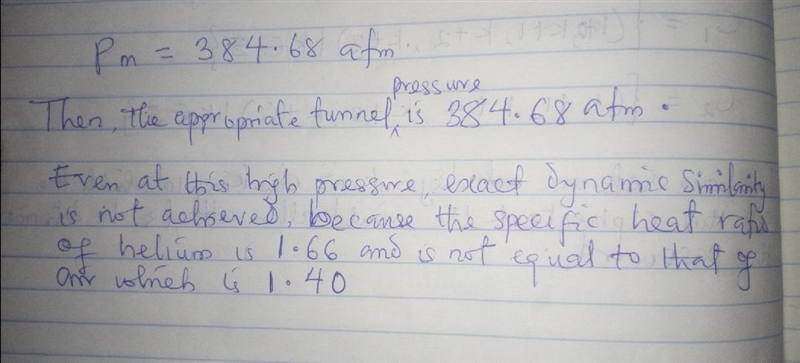 Pm = 384.68 atm
Then, the appropriate tunnel pressure is 384.68 atm.
Even at this high pressure, exact dynamic similarity
is not achieved, because the specific heat ratio
of helium is 1.66 and is not equal to that of
air which is 1.40